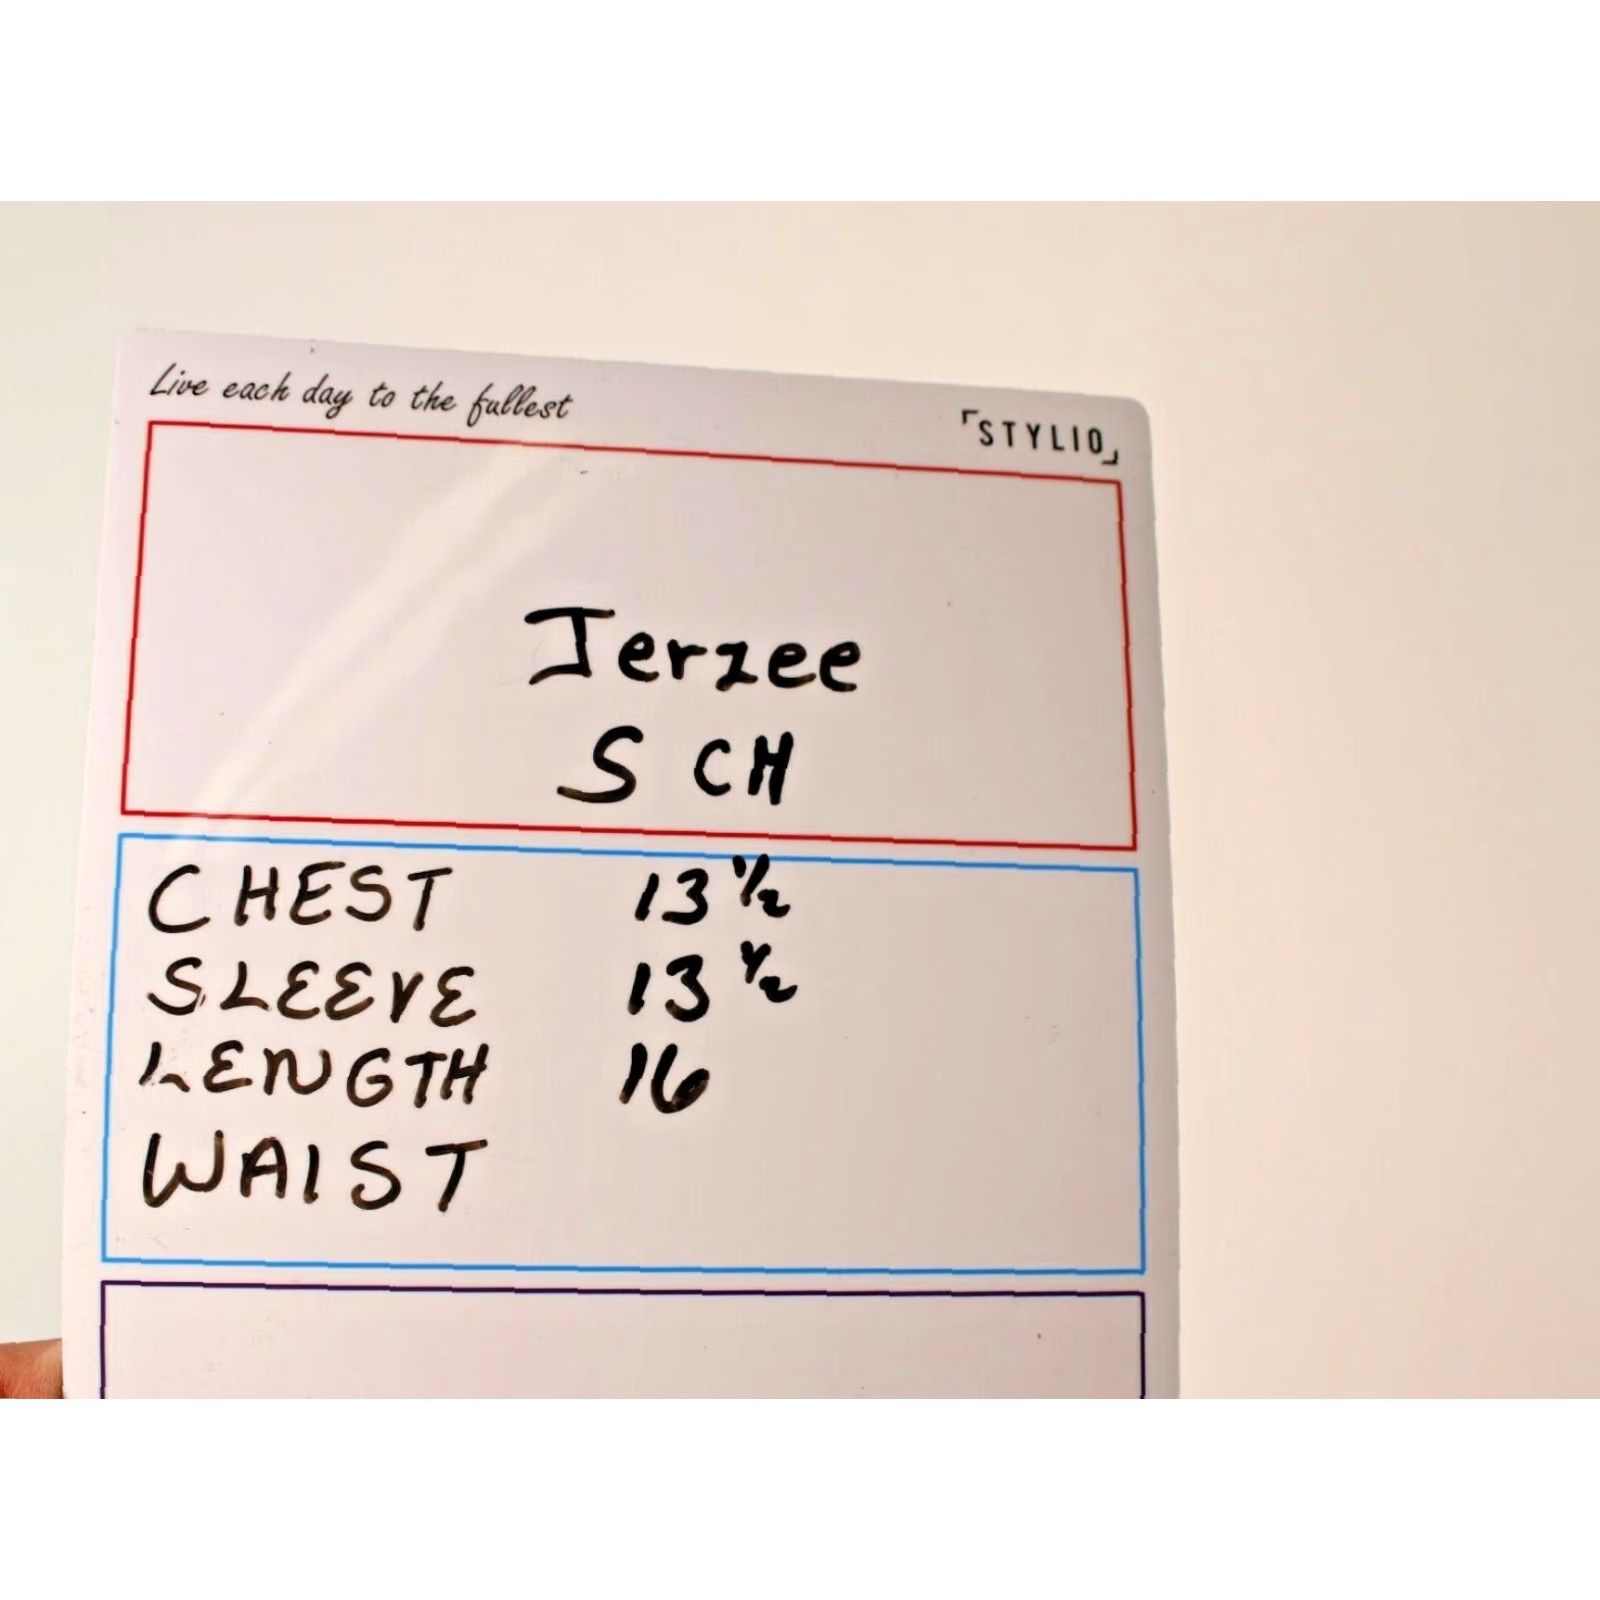 Live each day to the fullest
STYLIO
Jerzee
S CH
CHEST 13 1/2
SLEEVE 13 1/2
LENGTH 16
WAIST